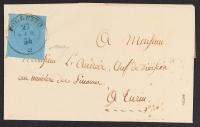 27
54
A Monsieur
Monsieur L. Andréi, Chef de Division
au ministère des Finances
à Turin